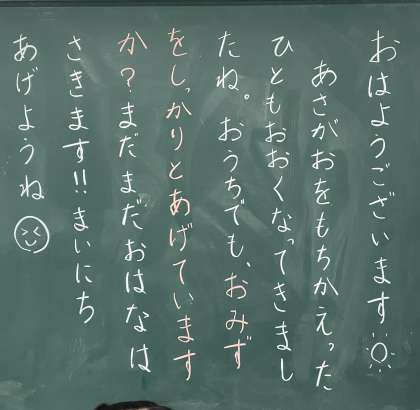 おはようございます
あさがおをもちかえった
ひともおおくなってきまし
たね。おうちでも、おみず
をしっかりとあげています
か?まだまだおはなは
さきます!!まいにち
あげようね